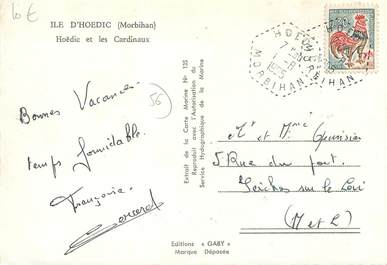 10 €
ILE D'HOEDIC (Morbihan)
Hoëdic et les Cardinaux
HOEDIC
7 H
1 - 8
1965
MORBIHAN
56
Bonnes Vacances
temps formidable.
Françoise
Gérard
Extrait de la Carte Marine N° 135
Reproduit avec l'Autorisation du
Service Hydrographique de la Marine
Mr et Mme
5 Rue du port.
Seiches sur le Loir
(M et L)
Editions « GABY »
Marque Déposée